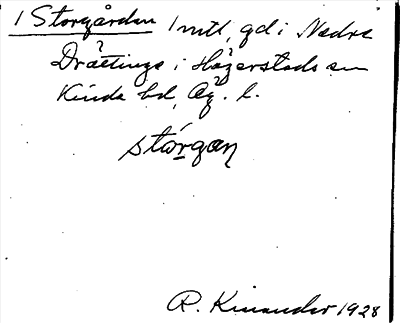 1 Storgården 1 mtl, gd i Nedre
Drättinge i Hägerstads sn
Kinda hd, Ög. l.
stórgan
R. Kinander 1928